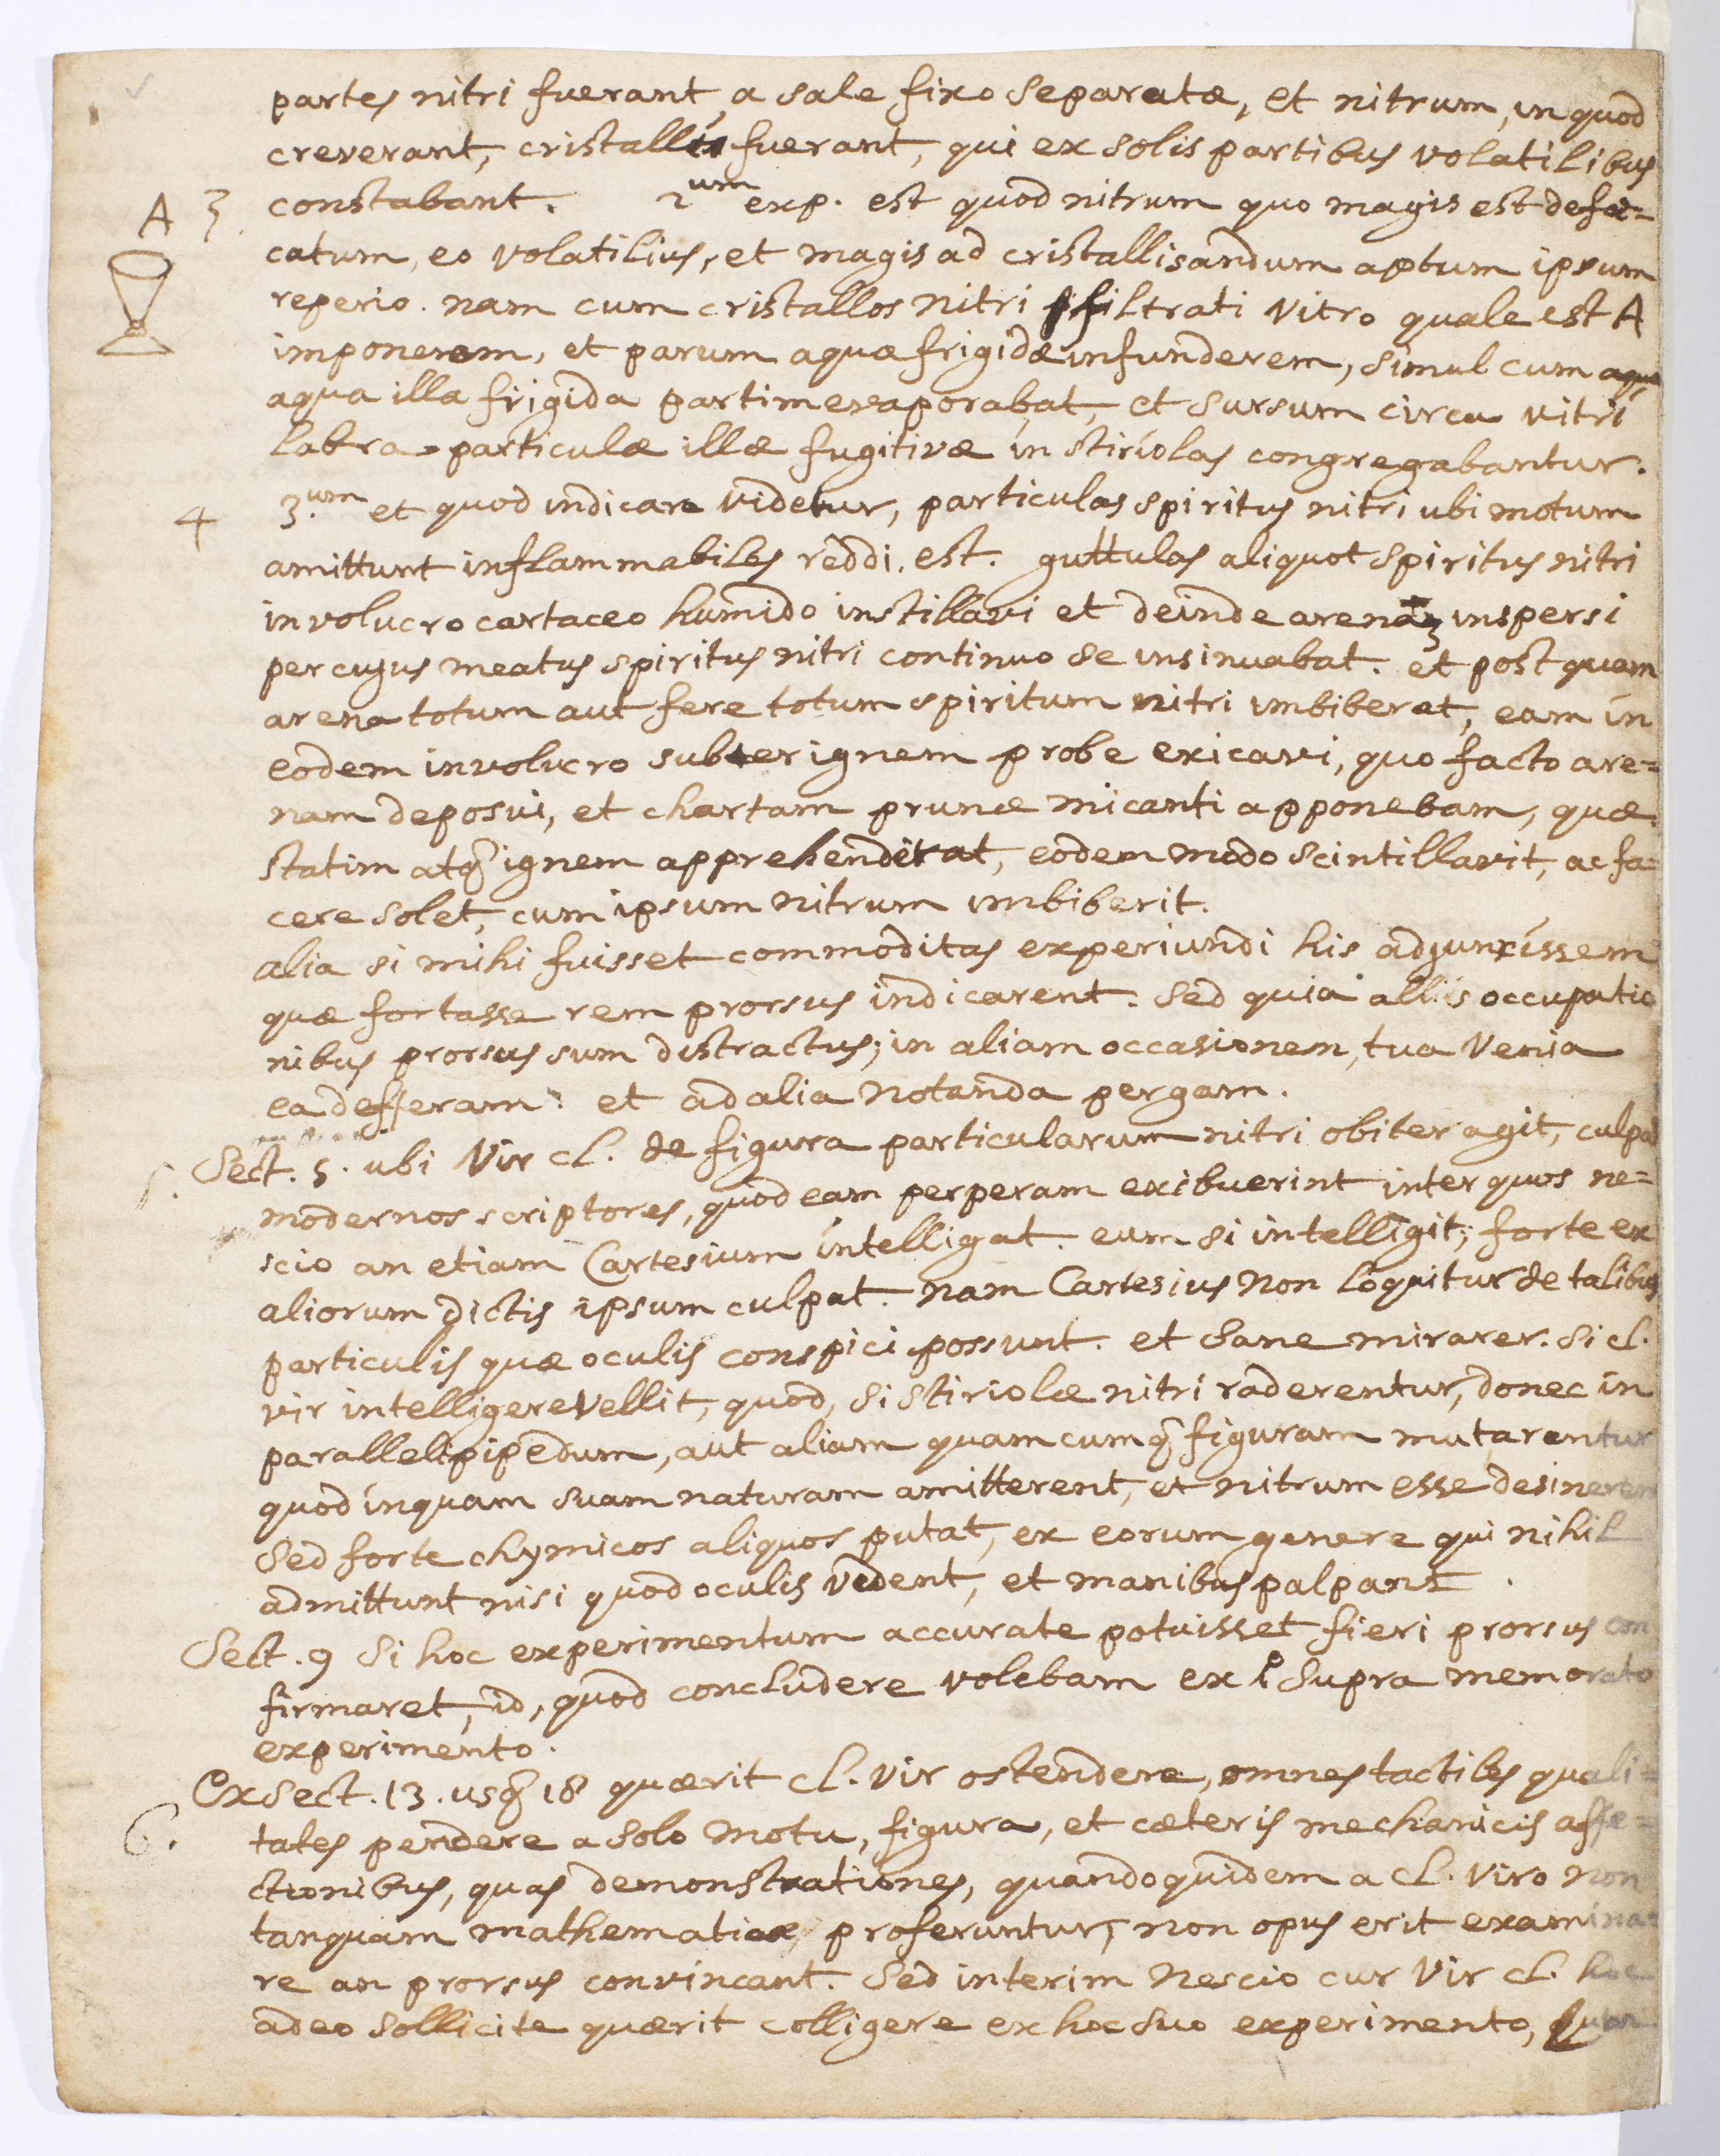 partes nitri fuerant a sale fixo separatæ, et nitrum, in quod
creverant, cristallis fuerant, qui ex solis partibus volatilibus
A 3 constabant. 2um exp. est quod nitrum quo magis est defæ=
catum, eo volatilius, et magis ad cristallisandum aptum ipsum
reperio. nam cum cristallos nitri filtrati vitro quale est A
imponerem, et parum aquæ frigidæ infunderem, simul cum aqua
aqua illa frigida partim evaporabat, et sursum circa vitri
labra particulæ illæ fugitivæ in stiriolas congregabantur.
4 3.um et quod indicare videtur, particulas spiritus nitri ubi motum
amittunt inflammabiles reddi. est. guttulas aliquot spiritus nitri
involucro cartaceo humido instillavi et deinde arenam inspersi
per cujus meatus spiritus nitri continuo se insinuabat. et postquam
arena totum aut fere totum spiritum nitri imbiberat, eam in
eodem involucro subter ignem probe exicavi, quo facto are=
nam deposui, et chartam prunæ micanti apponebam, quæ
statim atq ignem apprehenderat, eodem modo scintillavit, ac fa=
cere solet, cum ipsum nitrum imbiberit.
alia si mihi fuisset commoditas experiundi his adjunxissem
quæ fortasse rem prorsus indicarent. Sed quia aliis occupatio
nibus prorsus sum distractus; in aliam occasionem, tua venia
ea defferam: et ad alia notanda pergam.
5. Sect. 5. ubi Vir cl. de figura particularum nitri obiter agit, culpat
modernos scriptores, quod eam perperam exibuerint inter quos ne=
scio an etiam Cartesium intelligat. eum si intelligit; forte ex
aliorum dictis ipsum culpat. nam Cartesius non loquitur de talibus
particulis quæ oculis conspici possunt. et sane mirarer. si cl.
vir intelligere vellit, quod, si stiriolæ nitri raderentur, donec in
parallelipipedum, aut aliam quamcumq figuram mutarentur
quod inquam suam naturam amitterent, et nitrum esse desinerent
Sed forte chymicos aliquos putat, ex eorum genere qui nihil
admittunt nisi quod oculis vident, et manibus palpant.
Sect. 9 Si hoc experimentum accurate potuisset fieri prorsus con
firmaret, id, quod concludere volebam ex 1o supra memorato
experimento.
Ex Sect. 13. usq 18 quærit cl. vir ostendere, omnes tactiles quali=
6. tates pendere a solo motu, figura, et cæteris mechanicis affe=
ctionibus, quas demonstrationes, quandoquidem a cl. viro non
tanquam mathematicæ proferuntur, non opus erit examina=
re an prorsus convincant. Sed interim nescio cur Vir cl. hoc
adeo sollicite quærit colligere ex hoc suo experimento,